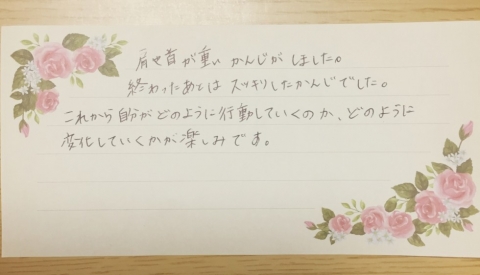 肩や首が重いかんじがしました。
終わったあとはスッキリしたかんじでした。
これから自分がどのように行動していくのか、どのように
変化していくかが楽しみです。